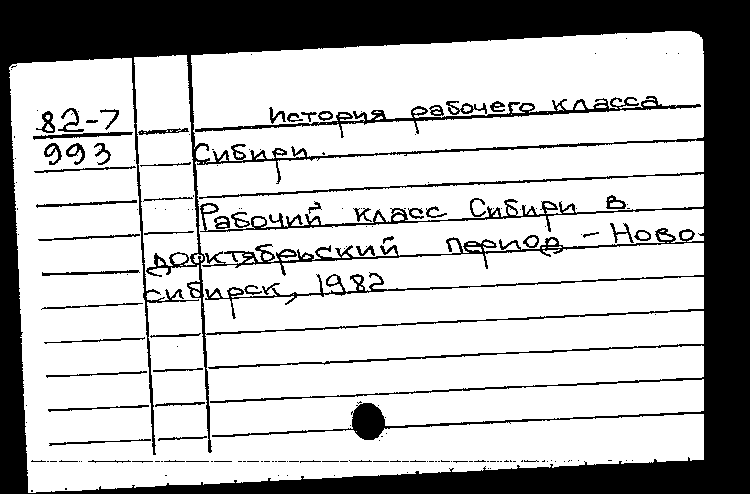 82-7 История рабочего класса
993 Сибири.
Рабочий класс Сибири в
дооктябрьский период - Ново-
сибирск, 1982